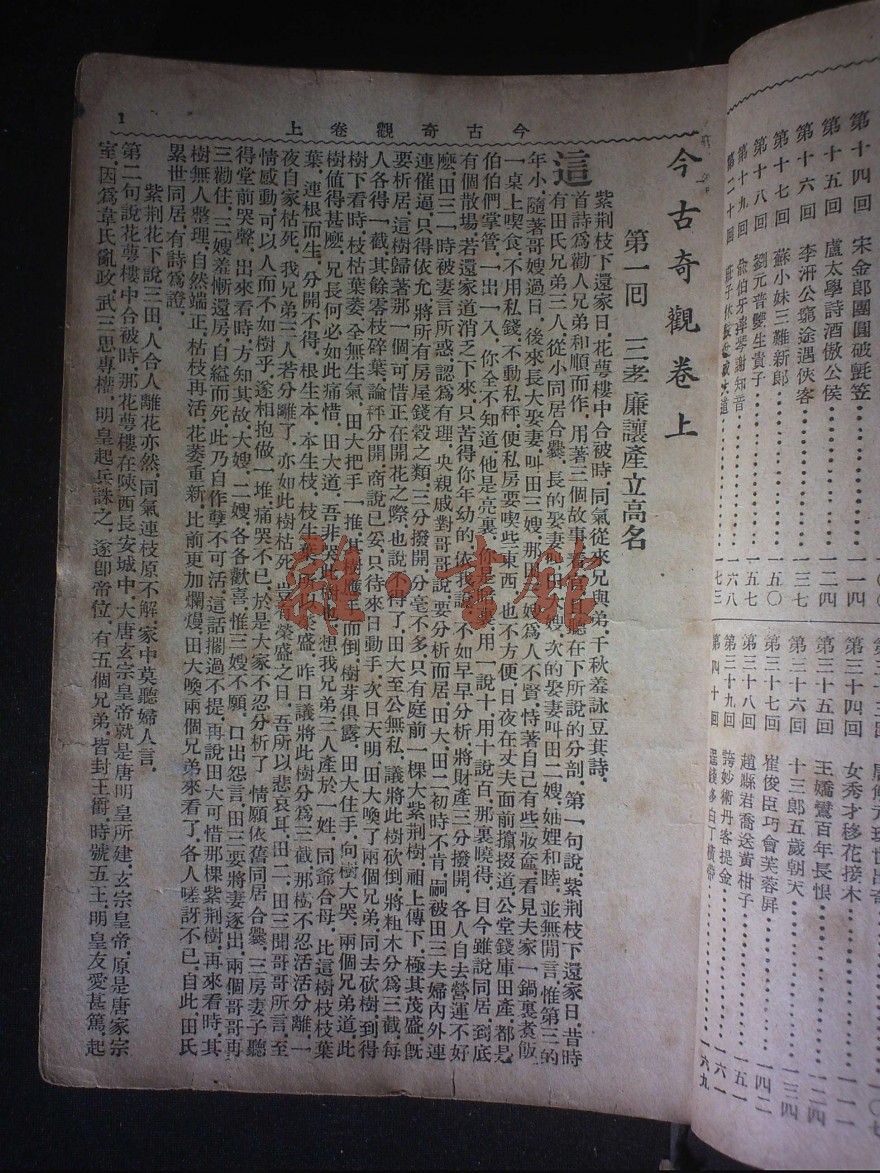 第十四回 宋金郎團圓破氈笠 一一四
第十五回 盧太學詩酒傲公侯 一二四
第十六回 李汧公窮途遇俠客 一三七
第十七回 蘇小妹三難新郎 一五〇
第十八回 劉元普雙生貴子 一五七
第十九回 俞伯牙摔琴謝知音 一六八
第二十回 一七三
第三十四回 女秀才移花接木 一一一
第三十五回 王嬌鸞百年長恨 一二四
第三十六回 十三郎五歲朝天 一三四
第三十七回 崔俊臣巧會芙蓉屏 一四二
第三十八回 趙縣君喬送黃柑子 一五一
第三十九回 誇妙術丹客提金 一六一
第四十回 一六九
今古奇觀卷上
1
今古奇觀卷上
第一囘 三孝廉讓產立高名
紫荊枝下還家日，花萼樓中合被時，同氣從來兄與弟，千秋羞詠豆萁詩，
這首詩爲勸人兄弟和順而作，用著三個故事，看官聽在下所說的分剖，第一句說，紫荊枝下還家日，昔時
有田氏兄弟三人，從小同居合爨，長的娶妻叫田大嫂，次的娶妻叫田二嫂，妯娌和睦，並無閒言，惟第三的
年小，隨著哥嫂過日，後來長大娶妻，叫田三嫂，那田三嫂爲人不賢，恃著自己有些妝奩，看見夫家一鍋裏煮飯，
一桌上喫食，不用私錢，不動私秤，便私房要喫些東西，也不方便，日夜在丈夫面前攛掇道，公堂錢庫田產都是
伯伯們掌管，一出一入，你全不知道，他是亮裏，你是暗裏，用一說十，用十說百，那裏曉得，目今雖說同居，到底
有個散場，若還家道消乏下來，只苦得你年幼的，依我說，不如早早分析，將財產三分撥開，各人自去營運不好
麽，田三一時被妻言所惑，認爲有理，央親戚對哥哥說，要分析而居，田大，田二初時不肯，嗣被田三夫婦內外連
連催逼，只得依允，將所有房屋錢穀之類，三分撥開，分毫不多，只有庭前一棵大紫荊樹，祖上傳下，極其茂盛，旣
要析居，這樹歸著那一個，可惜正在開花之際，也說不得了，田大至公無私，議將此樹砍倒，將粗木分爲三截，每
人各得一截，其餘零枝碎葉，論秤分開，商說已妥，只待來日動手，次日天明，田大喚了兩個兄弟，同去砍樹，到得
樹下看時，枝枯葉萎，全無生氣，田大把手一推，其樹應手而倒，樹芽俱露，田大住手，向樹大哭，兩個兄弟道，此
樹値得甚麽，兄長何必如此痛惜，田大道，吾非哭此樹也，想我兄弟三人，產於一姓，同爺合母，比這樹枝枝葉
葉，連根而生，分開不得，根生本，本生枝，枝生葉，所以榮盛，昨日議將此樹分爲三截，那樹不忍活活分離，一
夜自家枯死，我兄弟三人若分離了，亦如此樹枯死，豈有榮盛之日，吾所以悲哀耳，田二，田三聞哥哥所言，至
情感動，可以人而不如樹乎，遂相抱做一堆，痛哭不已，於是大家不忍分析了，情願依舊同居合爨，三房妻子聽
得堂前哭聲，出來看時，方知其故，大嫂，二嫂，各各歡喜，惟三嫂不願，口出怨言，田三要將妻逐出，兩個哥哥再
三勸住，三嫂羞慚還房，自縊而死，此乃自作孽不可活，這話擱過不提，再說田大可惜那棵紫荊樹，再來看時，其
樹無人整理，自然端正，枯枝再活，花萎重新，比前更加爛熳，田大喚兩個兄弟來看了，各人嗟訝不已，自此，田氏
累世同居，有詩爲證，
紫荊花下說三田，人合人離花亦然，同氣連枝原不解，家中莫聽婦人言，
第二句說花萼樓中合被時，那花萼樓在陝西長安城中，大唐玄宗皇帝就是唐明皇所建，玄宗皇帝，原是唐家宗
室，因爲韋氏亂政，武三思專權，明皇起兵誅之，遂卽帝位，有五個兄弟，皆封王爵，時號五王，明皇友愛甚篤，起
雜·書館